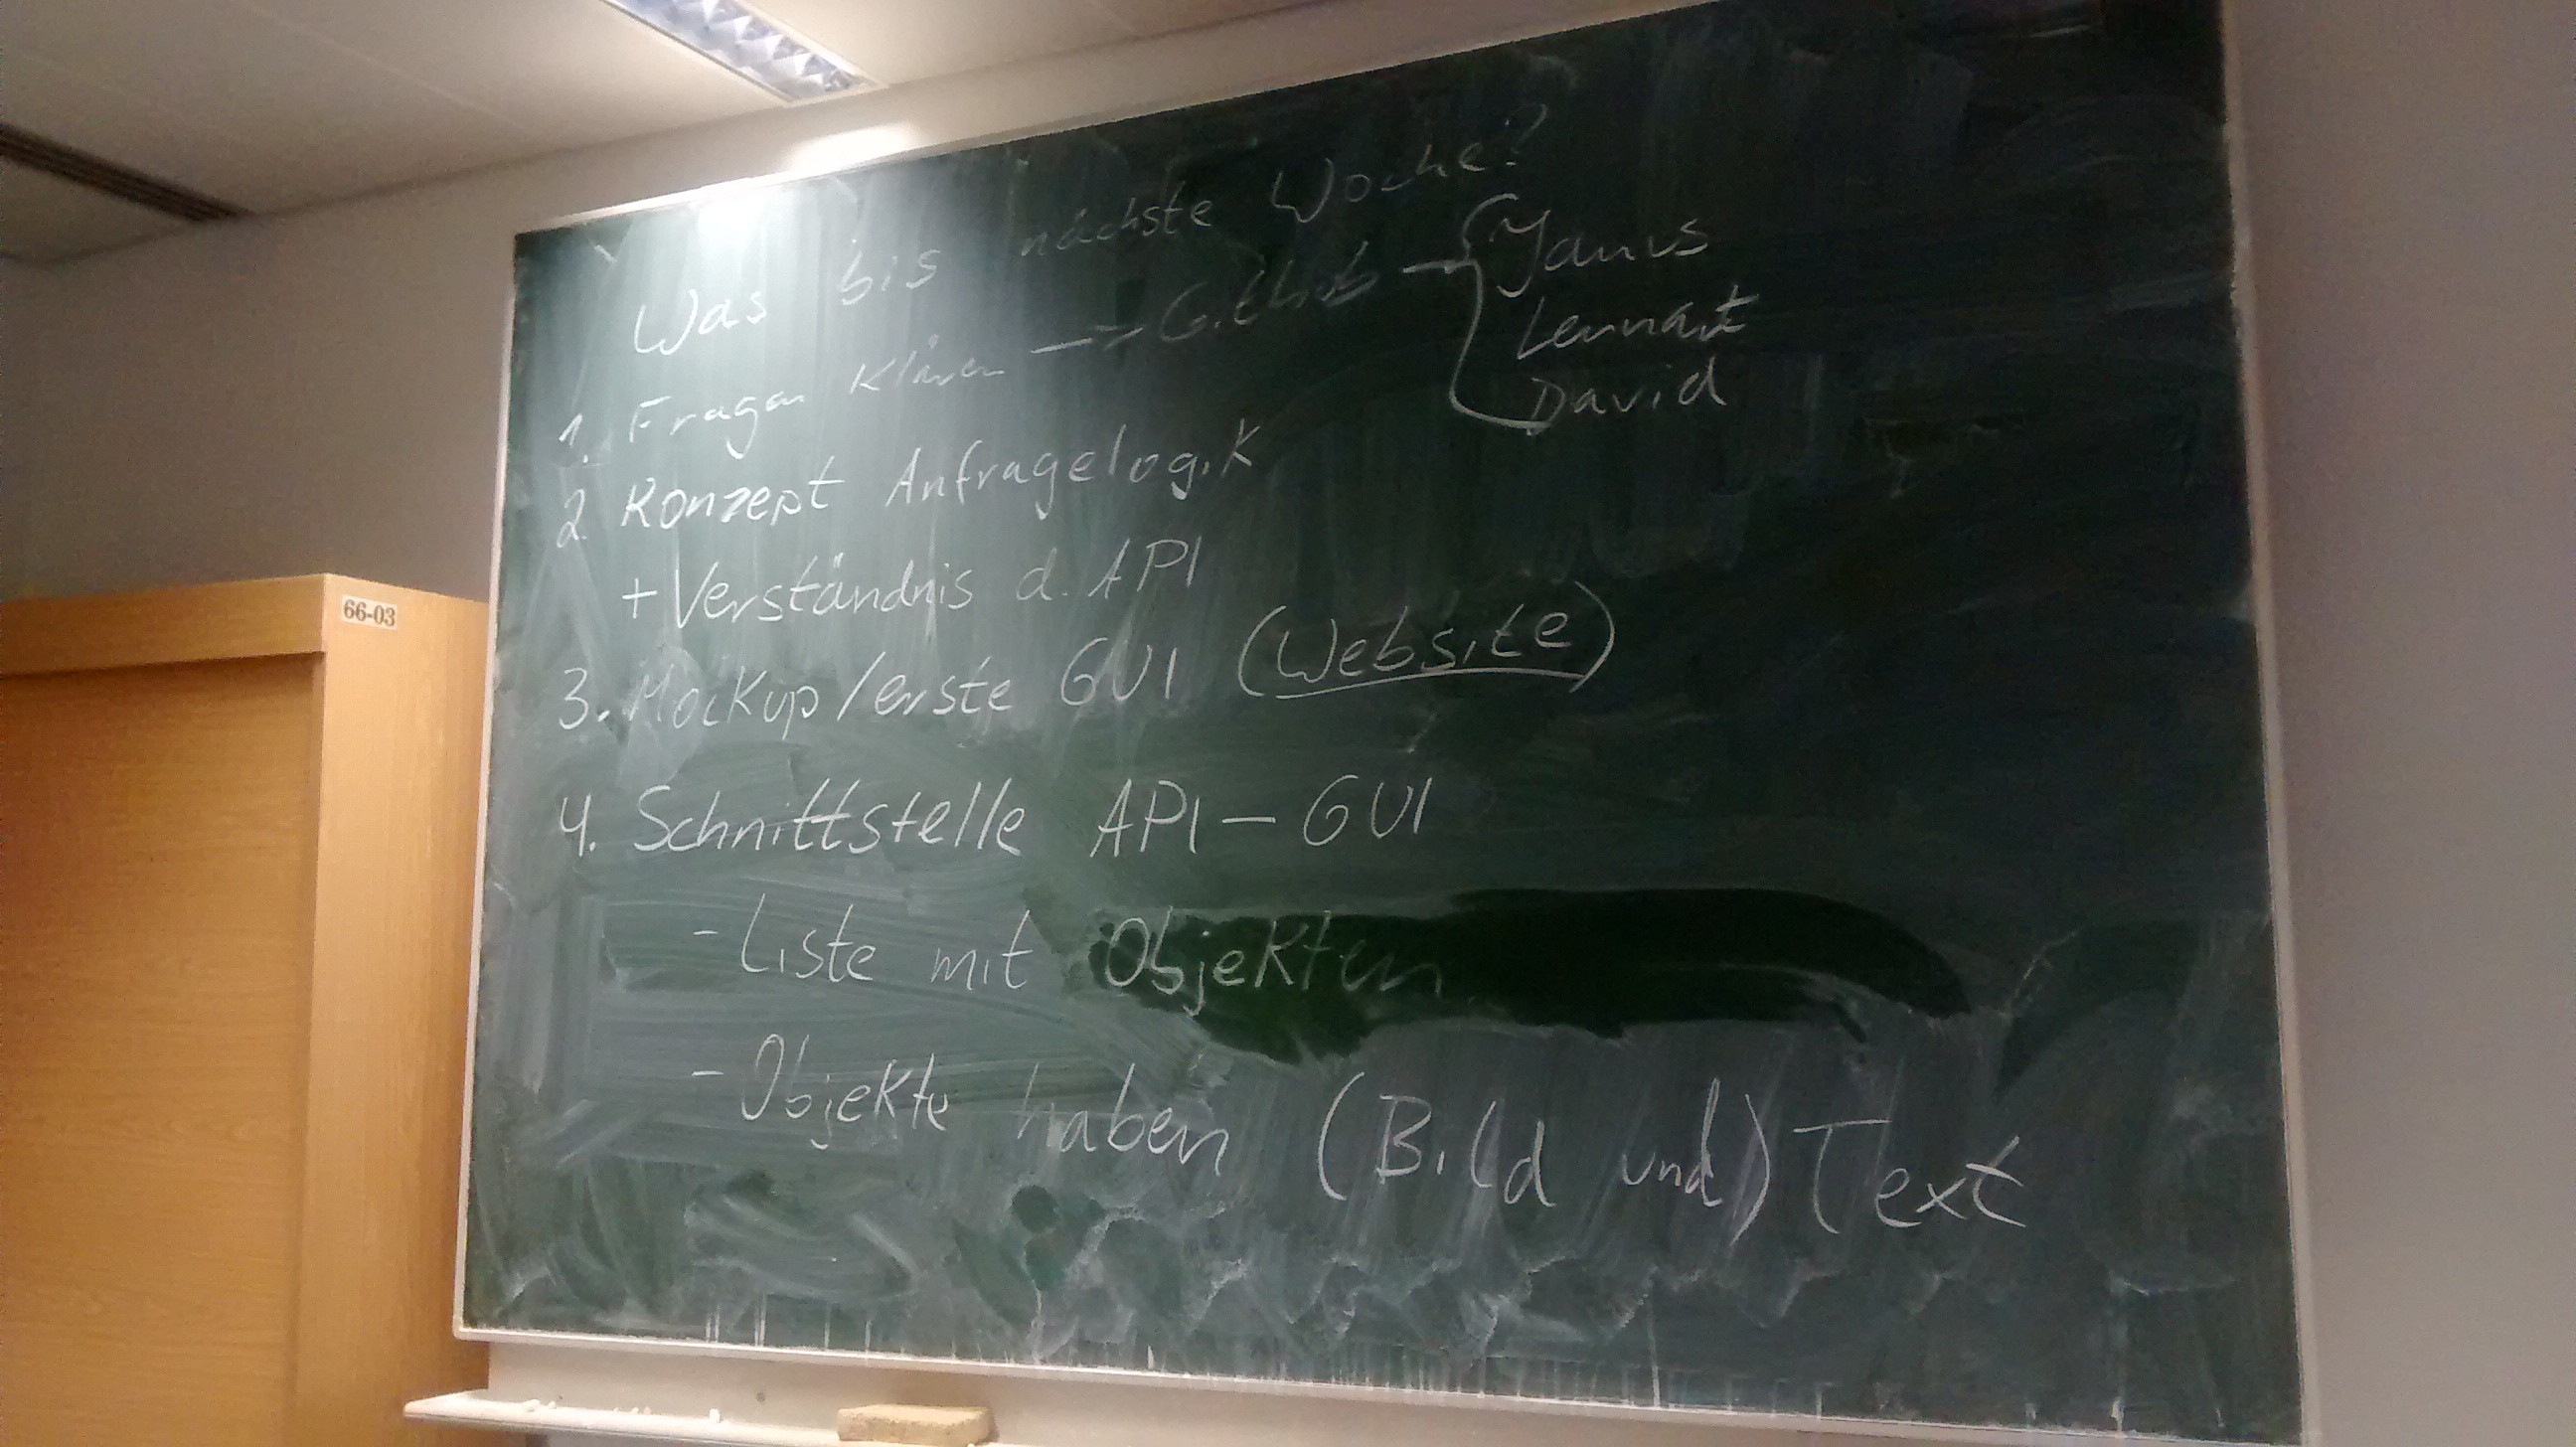 Was bis nächste Woche?
1. Fragen klären → Github — { Janis
Lennart
David
2. Konzept Anfragelogik
+ Verständnis d. API
3. Mockup/erste GUI (Website)
4. Schnittstelle API – GUI
- Liste mit Objekten
- Objekte haben (Bild und) Text
66-03